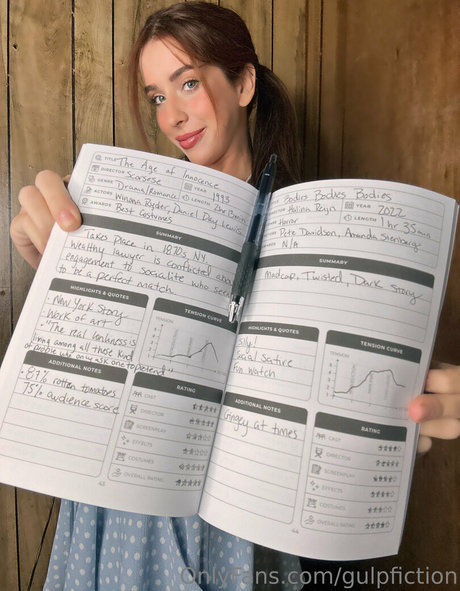 TITLE The Age of Innocence
DIRECTOR Scorsese YEAR 1993
GENRE Drama/Romance LENGTH 2hr
ACTORS Winona Ryder, Daniel Day Lewis
AWARDS Best Costumes
SUMMARY
Takes place in 1870s, NY.
Wealthy lawyer is conflicted about
engagement to socialite who seems
to be a perfect match.
HIGHLIGHTS & QUOTES
New York Story
Work of art
"The real lonliness is
living among all these kind
of people who only ask one to pretend"
TENSION CURVE
TENSION
ADDITIONAL NOTES
87% rotten tomatoes
75% audience score
RATING
CAST
DIRECTOR
SCREENPLAY
EFFECTS
COSTUMES
OVERALL RATING
43
Bodies Bodies Bodies
DIRECTOR Halina Reijn YEAR 2022
Horror LENGTH 1hr 35min
Pete Davidson, Amandla Stenberg
AWARDS N/A
SUMMARY
Madcap, Twisted, Dark Story
HIGHLIGHTS & QUOTES
Silly!
Social Satire
Fun Watch
TENSION CURVE
TENSION
ADDITIONAL NOTES
Cringey at times
RATING
CAST
DIRECTOR
SCREENPLAY
EFFECTS
COSTUMES
OVERALL RATING
44
OnlyFans.com/gulpfiction